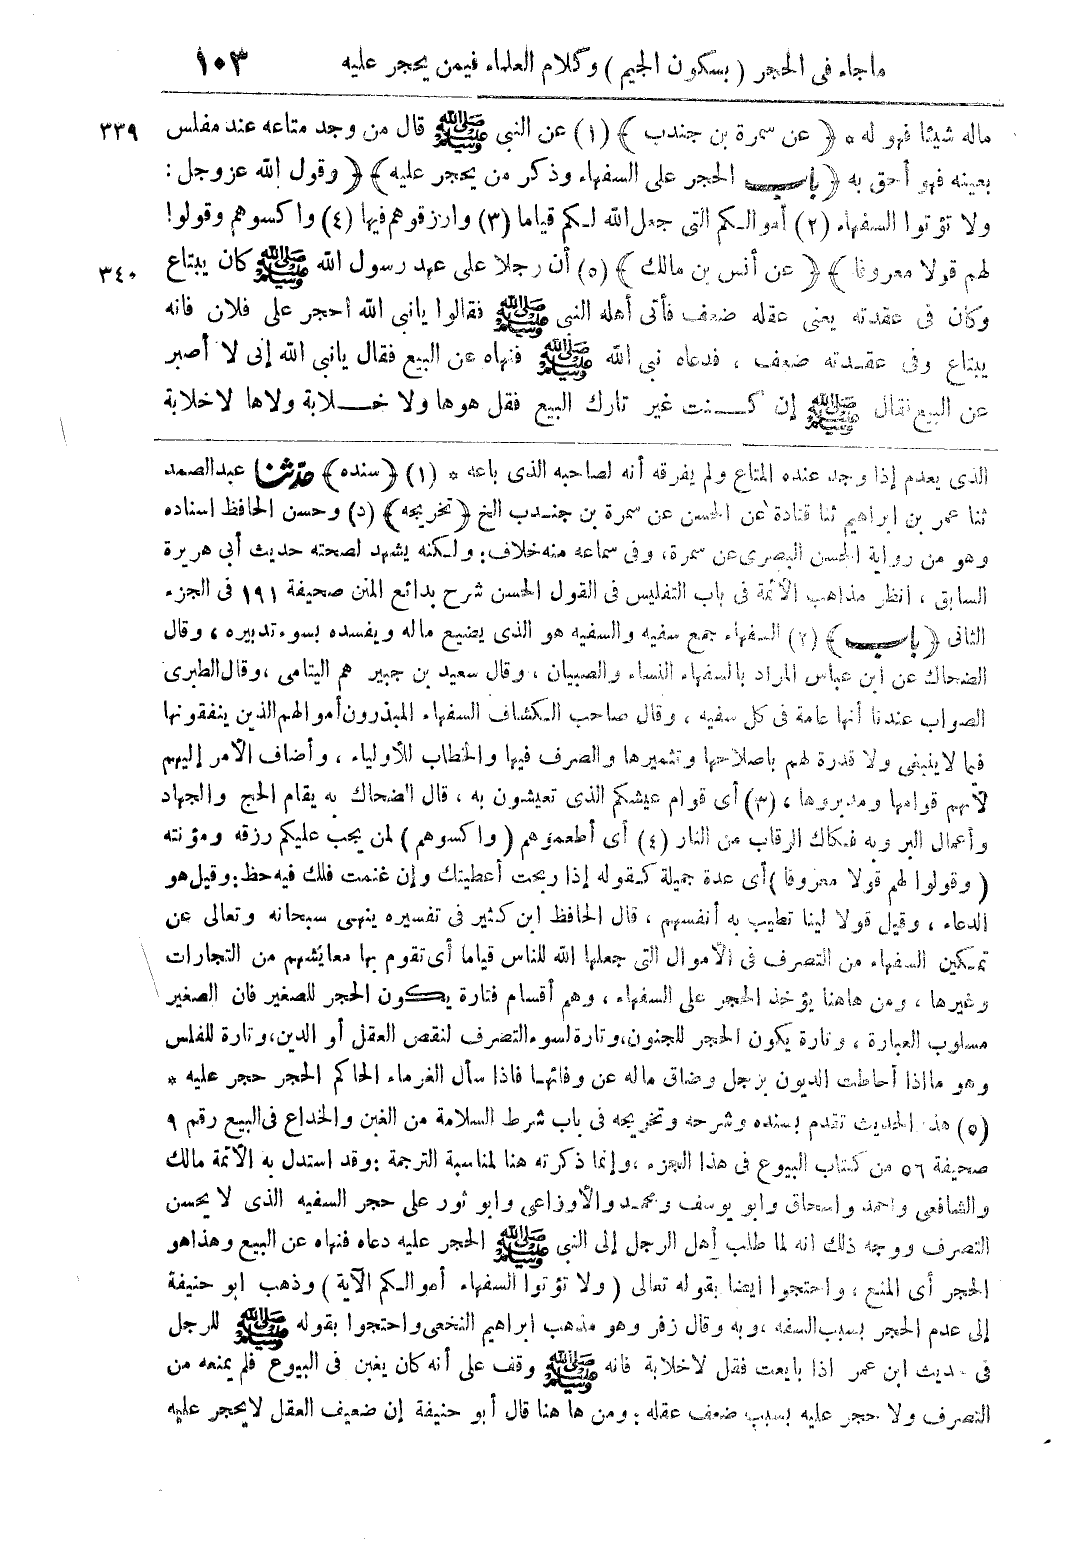 ماجاء فى الحجر ( بسكون الجيم ) وكلام العلماء فيمن يحجر عليه ١٠٣
ماله شيئا فهو له * ﴿ عن سمرة بن جندب ﴾ (١) عن النبى ﷺ قال من وجد متاعه عند مفلس ٣٣٩
بعينه فهو أحق به ﴿ باب الحجر على السفهاء وذكر من يحجر عليه ﴾ ﴿ وقول الله عزوجل :
ولا تؤتوا السفهاء (٢) أموالكم التى جعل الله لكم قياما (٣) وارزقوهم فيها (٤) واكسوهم وقولوا
لهم قولا معروفا ﴾ ﴿ عن أنس بن مالك ﴾ (٥) أن رجلا على عهد رسول الله ﷺ كان يبتاع ٣٤٠
وكان فى عقدته يعنى عقله ضعف فأتى أهله النبى ﷺ فقالوا يانبى الله احجر على فلان فانه
يبتاع وفى عقدته ضعف ، فدعاه نبى الله ﷺ فنهاه عن البيع فقال يانبى الله إنى لا أصبر
عن البيع فقال ﷺ إن كنت غير تارك البيع فقل هوها ولا خلابة ولاها لاخلابة
الذى يعدم إذا وجد عنده المتاع ولم يفرقه أنه لصاحبه الذى باعه * (١) ﴿ سنده ﴾ حدثنا عبدالصمد
ثنا عمر بن ابراهيم ثنا قتادة عن الحسن عن سمرة بن جندب الخ ﴿ تخريجه ﴾ (د) وحسن الحافظ اسناده
وهو من رواية الحسن البصرى عن سمرة، وفى سماعه منه خلاف: ولكنه يشهد لصحته حديث أبى هريرة
السابق ، انظر مذاهب الأئمة فى باب التفليس فى القول الحسن شرح بدائع المنن صحيفة ١٩١ فى الجزء
الثانى ﴿ باب ﴾ (٢) السفهاء جمع سفيه والسفيه هو الذى يضيع ماله ويفسده بسوء تدبيره ، وقال
الضحاك عن ابن عباس المراد بالسفهاء النساء والصبيان ، وقال سعيد بن جبير هم اليتامى ،وقال الطبرى
الصواب عندنا أنها عامة فى كل سفيه ، وقال صاحب الكشاف السفهاء المبذرون أموالهم الذين ينفقونها
فيما لاينبغى ولا قدرة لهم باصلاحها وتثميرها والصرف فيها والخطاب للأولياء ، وأضاف الأمر إليهم
لأنهم قوامها ومدبروها ، (٣) أى قوام عيشكم الذى تعيشون به ، قال الضحاك به يقام الحج والجهاد
وأعمال البر وبه فكاك الرقاب من النار (٤) أى أطعموهم ( واكسوهم ) لمن يجب عليكم رزقه ومؤنته
( وقولوا لهم قولا معروفا ) أى عدة جميلة كقوله إذا ربحت أعطيتك وإن غنمت فلك فيه حظ: وقيل هو
الدعاء ، وقيل قولا لينا تطيب به أنفسهم ، قال الحافظ ابن كثير فى تفسيره ينهى سبحانه وتعالى عن
تمكين السفهاء من التصرف فى الأموال التى جعلها الله للناس قياما أى تقوم بها معايشهم من التجارات
وغيرها ، ومن هاهنا يؤخذ الحجر على السفهاء ، وهم أقسام فتارة يكون الحجر للصغير فان الصغير
مسلوب العبارة ، وتارة يكون الحجر للجنون، وتارة لسوء التصرف لنقص العقل أو الدين، وتارة للفلس
وهو ما إذا أحاطت الديون برجل وضاق ماله عن وفائها فاذا سأل الغرماء الحاكم الحجر حجر عليه *
(٥) هذا الحديث تقدم بسنده وشرحه وتخريجه فى باب شرط السلامة من الغبن والخداع فى البيع رقم ٩
صحيفة ٥٦ من كتاب البيوع فى هذا الجزء ،وإنما ذكرته هنا لمناسبة الترجمة :وقد استدل به الأئمة مالك
والشافعى واحمد واسحاق وابو يوسف ومحمد والأوزاعى وابو ثور على حجر السفيه الذى لا يحسن
التصرف ووجه ذلك انه لما طلب أهل الرجل إلى النبى ﷺ الحجر عليه دعاه فنهاه عن البيع وهذاهو
الحجر أى المنع ، واحتجوا ايضا بقوله تعالى ( ولا تؤتوا السفهاء أموالكم الآية ) وذهب ابو حنيفة
إلى عدم الحجر بسبب السفه ،وبه وقال زفر وهو مذهب ابراهيم النخعى واحتجوا بقوله ﷺ للرجل
فى حديث ابن عمر اذا بايعت فقل لاخلابة فانه ﷺ وقف على أنه كان يغبن فى البيوع فلم يمنعه من
التصرف ولا حجر عليه بسبب ضعف عقله : ومن ها هنا قال أبو حنيفة إن ضعيف العقل لايحجر عليه